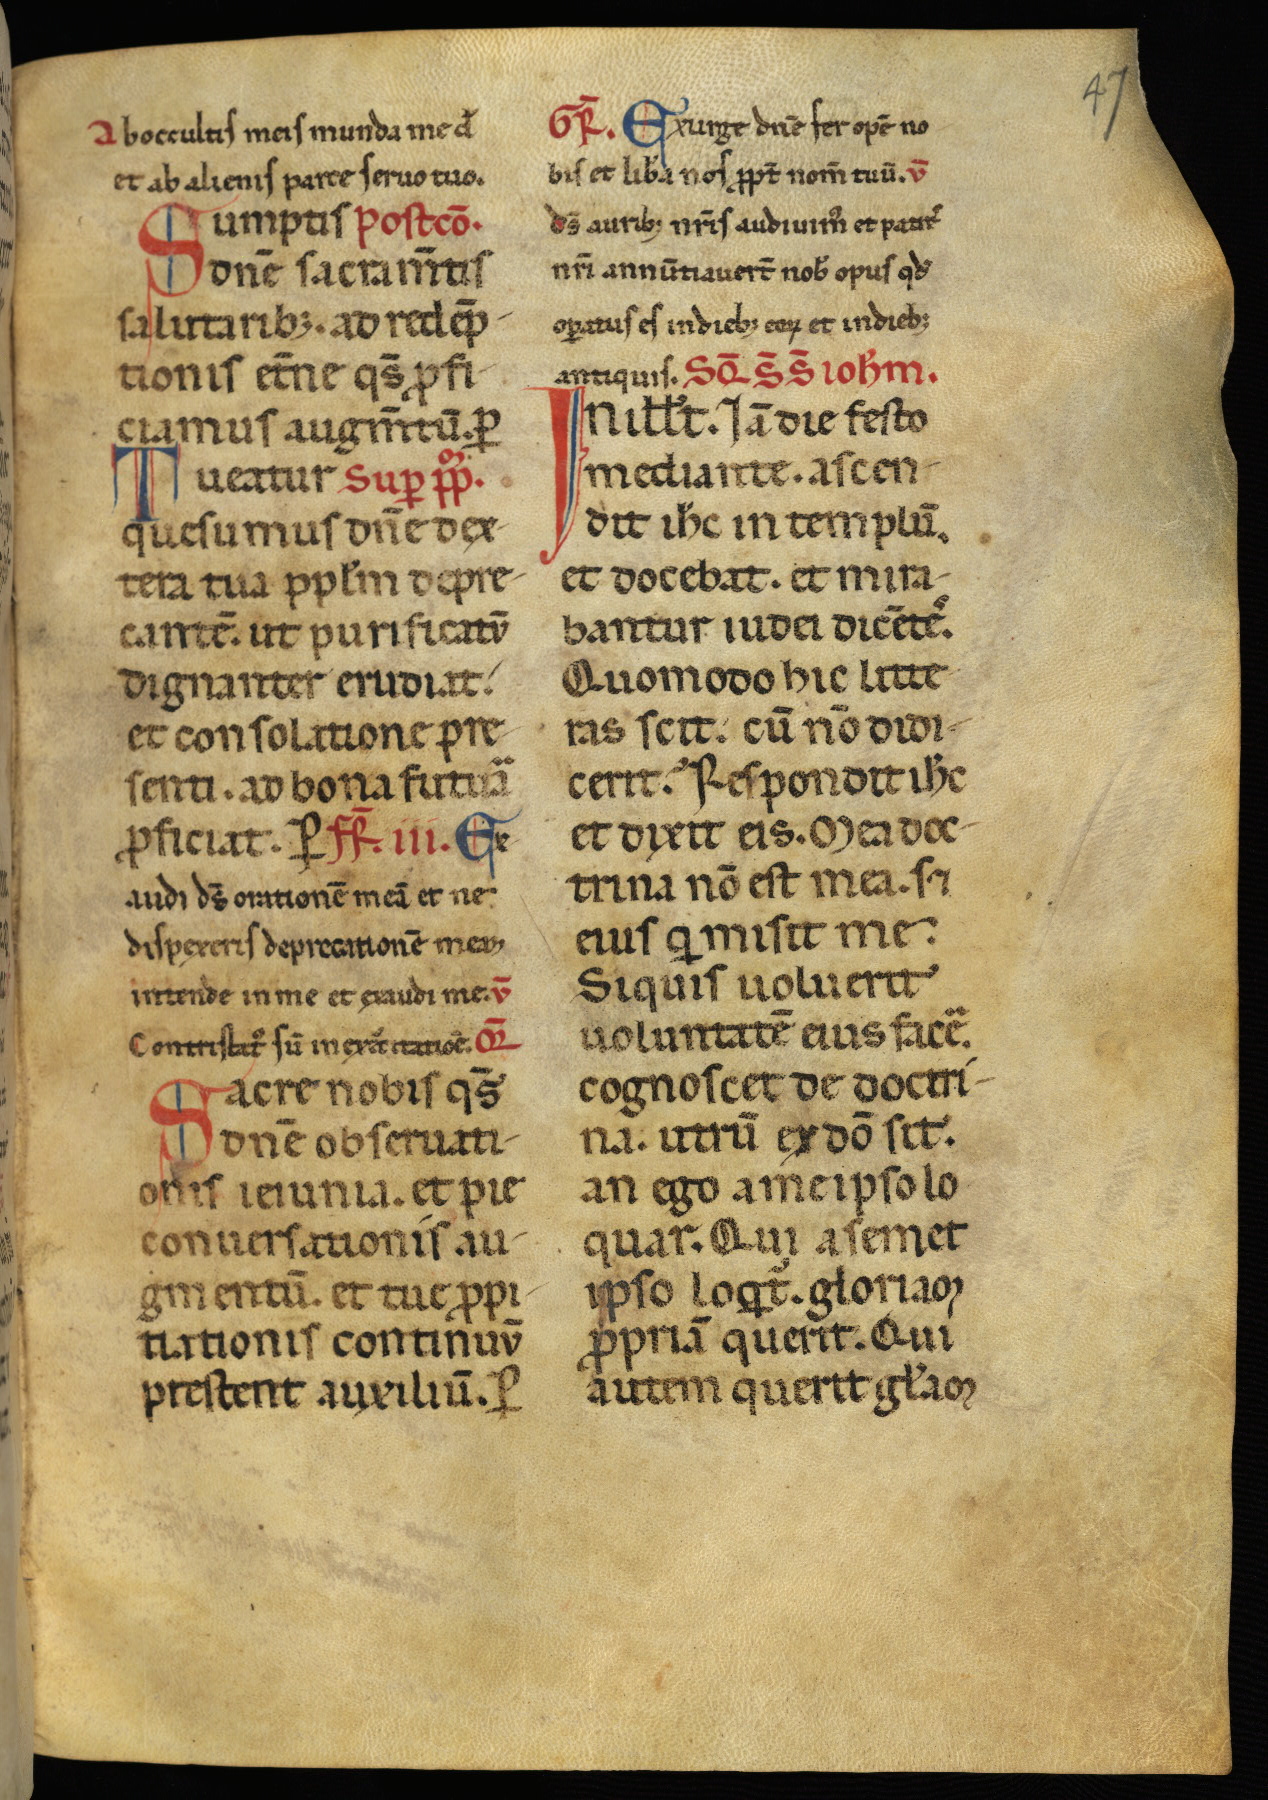 47
Ab occultis meis munda me d̄
et ab alienis parce seruo tuo.
Sumptis postcō.
dn̄e sacram̄tis
salutarib;. ad redēp-
tionis et̄ne qs̄ ꝓfi-
ciamus augm̄tū. ꝑ
Tueatur Suꝑ pp̄.
quesumus dn̄e dex-
tera tua ppl̄m depre-
cantē. ut purificatū
dignanter erudiat.
et consolatione pre-
senti. ad bona futura
ꝓficiat. ꝑ fR̄. iii. Ex
audi ds̄ orationē meā et ne
dispexeris deprecationē meā
intende in me et exaudi me. v̄
Contristat᷒ sū in exercitatiōe. Or̄
Sacre nobis qs̄
dn̄e obseruati-
onis ieiunia. et pie
conuersationis au-
gmentū. et tue ꝓpi-
tiationis continuū
prestent auxiliū. ꝑ
GR̄. Exurge dn̄e fer opē no
bis et lib̄a nos ꝓpt̄ nom̄ tuū. v̄
ds̄ aurib; nr̄is audiuim᷒ et patr̄
nr̄i annūtiauert̄ nob̄ opus qd̄
oꝑatus es in dieb; eoꝝ et in dieb;
antiquis. SQ̄ S̄ S̄ ioh̄m.
In ill̄t. Jā die festo
mediante. ascen-
dit ih̄c in templū.
et docebat. et mira-
bantur iudei dicētes.
Quomodo hic litte-
ras scit. cū nō didi-
cerit. Respondit ih̄c
et dixit eis. Mea doc-
trina nō est mea. s;
eius q̇ misit me.
Siquis uoluerit
uoluntatē eius facere.
cognoscet de doctri-
na. utrū ex dō sit.
an ego a me ipso lo
quar. Qui a semet
ipso loqt̄. gloriaꝫ
ꝓpriā querit. Qui
autem querit gl̄aꝫ